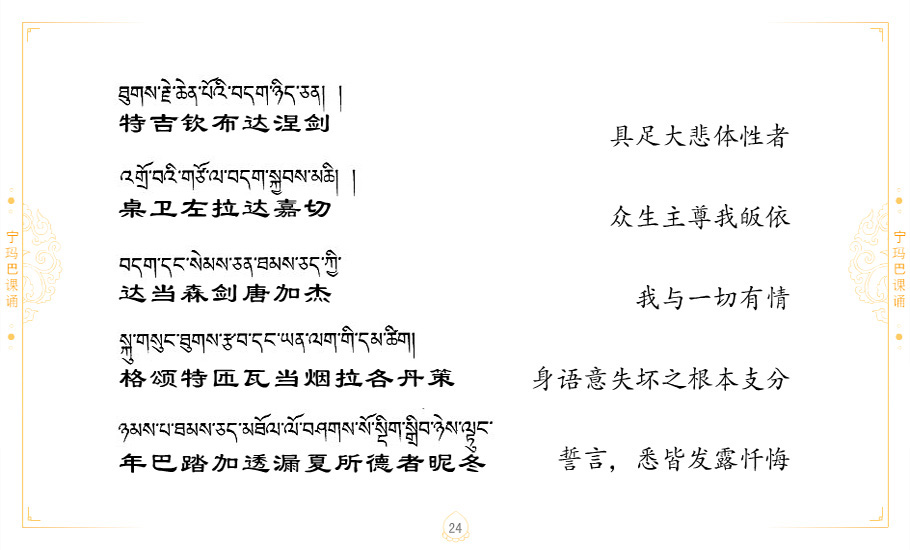 ཐུགས་རྗེ་ཆེན་པོའི་བདག་ཉིད་ཅན། །
特吉钦布达涅剑
具足大悲体性者
འགྲོ་བའི་གཙོ་ལ་བདག་སྐྱབས་མཆི། །
桌卫左拉达嘉切
众生主尊我皈依
བདག་དང་སེམས་ཅན་ཐམས་ཅད་ཀྱི་
达当森剑唐加杰
我与一切有情
སྐུ་གསུང་ཐུགས་རྩ་བ་དང་ཡན་ལག་གི་དམ་ཚིག།
格颂特匝瓦当烟拉各丹策
身语意失坏之根本支分
ཉམས་པ་ཐམས་ཅད་མཐོལ་ལོ་བཤགས་སོ་སྡིག་སྒྲིབ་ཉེས་ལྟུང་
年巴踏加透漏夏所德者昵冬
誓言，悉皆发露忏悔
宁玛巴课诵
宁玛巴课诵
24